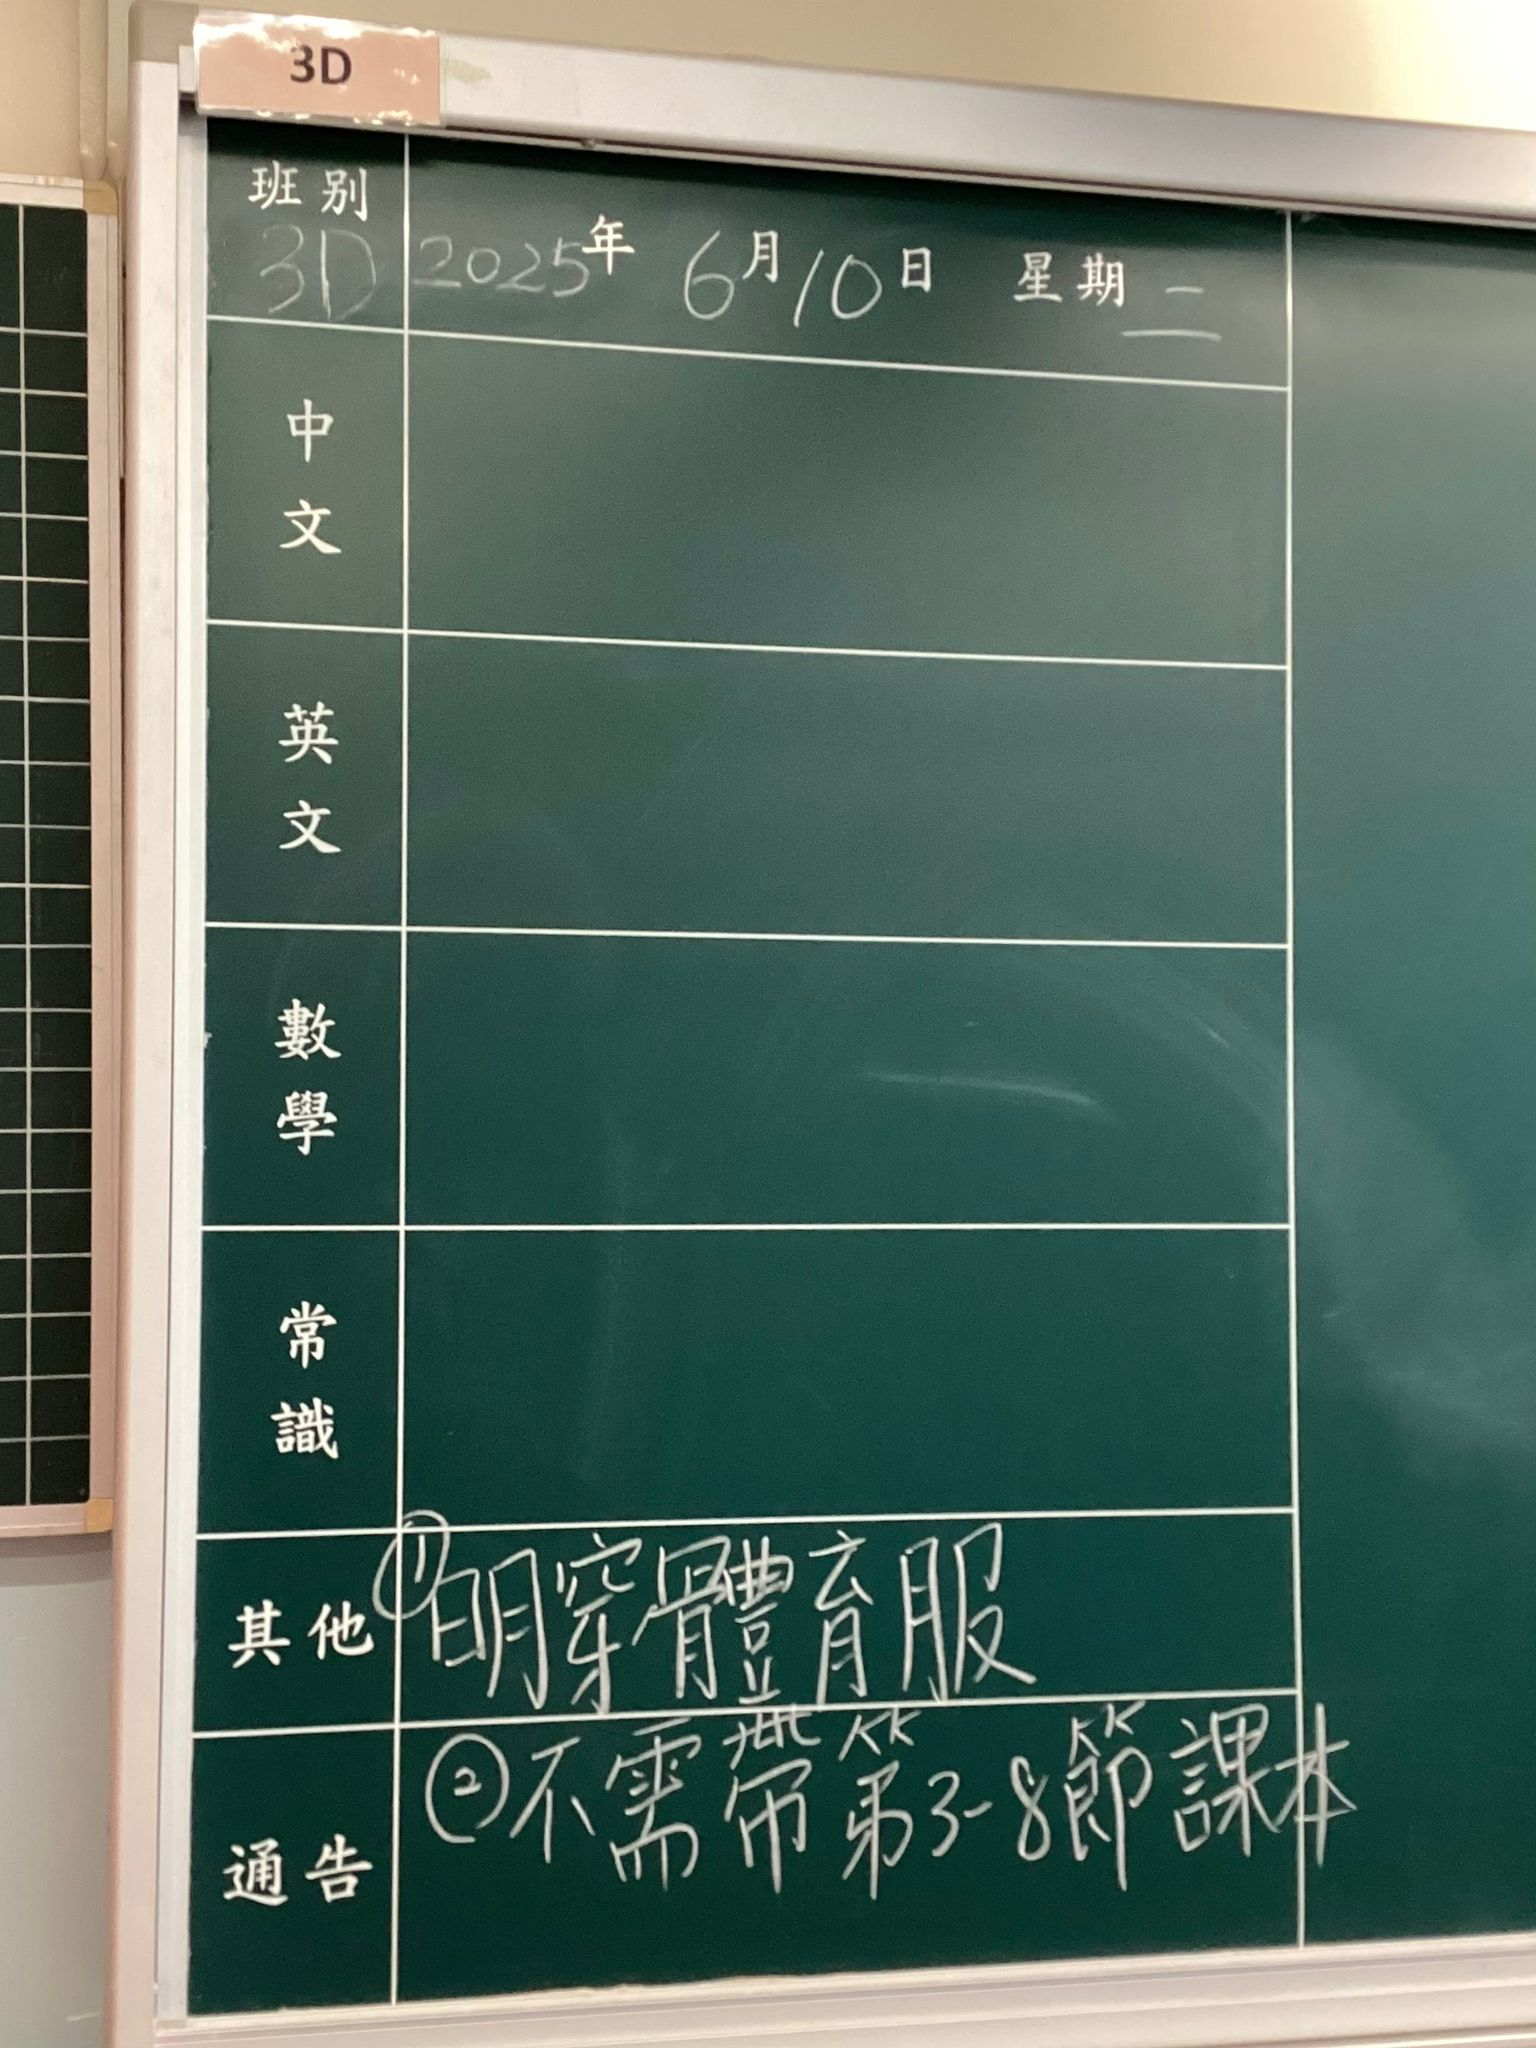 3D
班別
3D
2025年 6月10日 星期二
中文
英文
數學
常識
其他
①明穿體育服
通告
②不需帶第3-8節課本